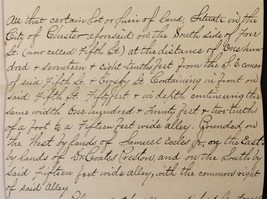 All that certain lot or piece of land, Situate in the
City of Chester aforesaid on the South side of Four
St. (now called Fifth St.) at the distance of One hun
dred & seventeen & eight tenths feet from the S.E. corner
of said Fifth St. & Crosby St. Containing in front on
said Fifth St. Fifty feet & in depth continuing the
same width One hundred & twenty feet & two tenths
of a foot to a Fifteen feet wide alley. Bounded on
the West by lands of Samuel Eccles Jr., on the East
by lands of Dr Coates Preston, and on the South by
said Fifteen feet wide alley, with the common right
of said Alley